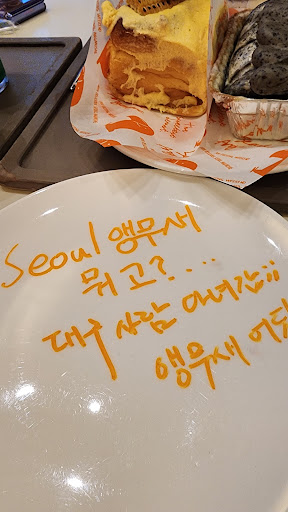 Seoul 앵무새
뭐고?....
대구 사람 아녀간;;
앵무새 어딨